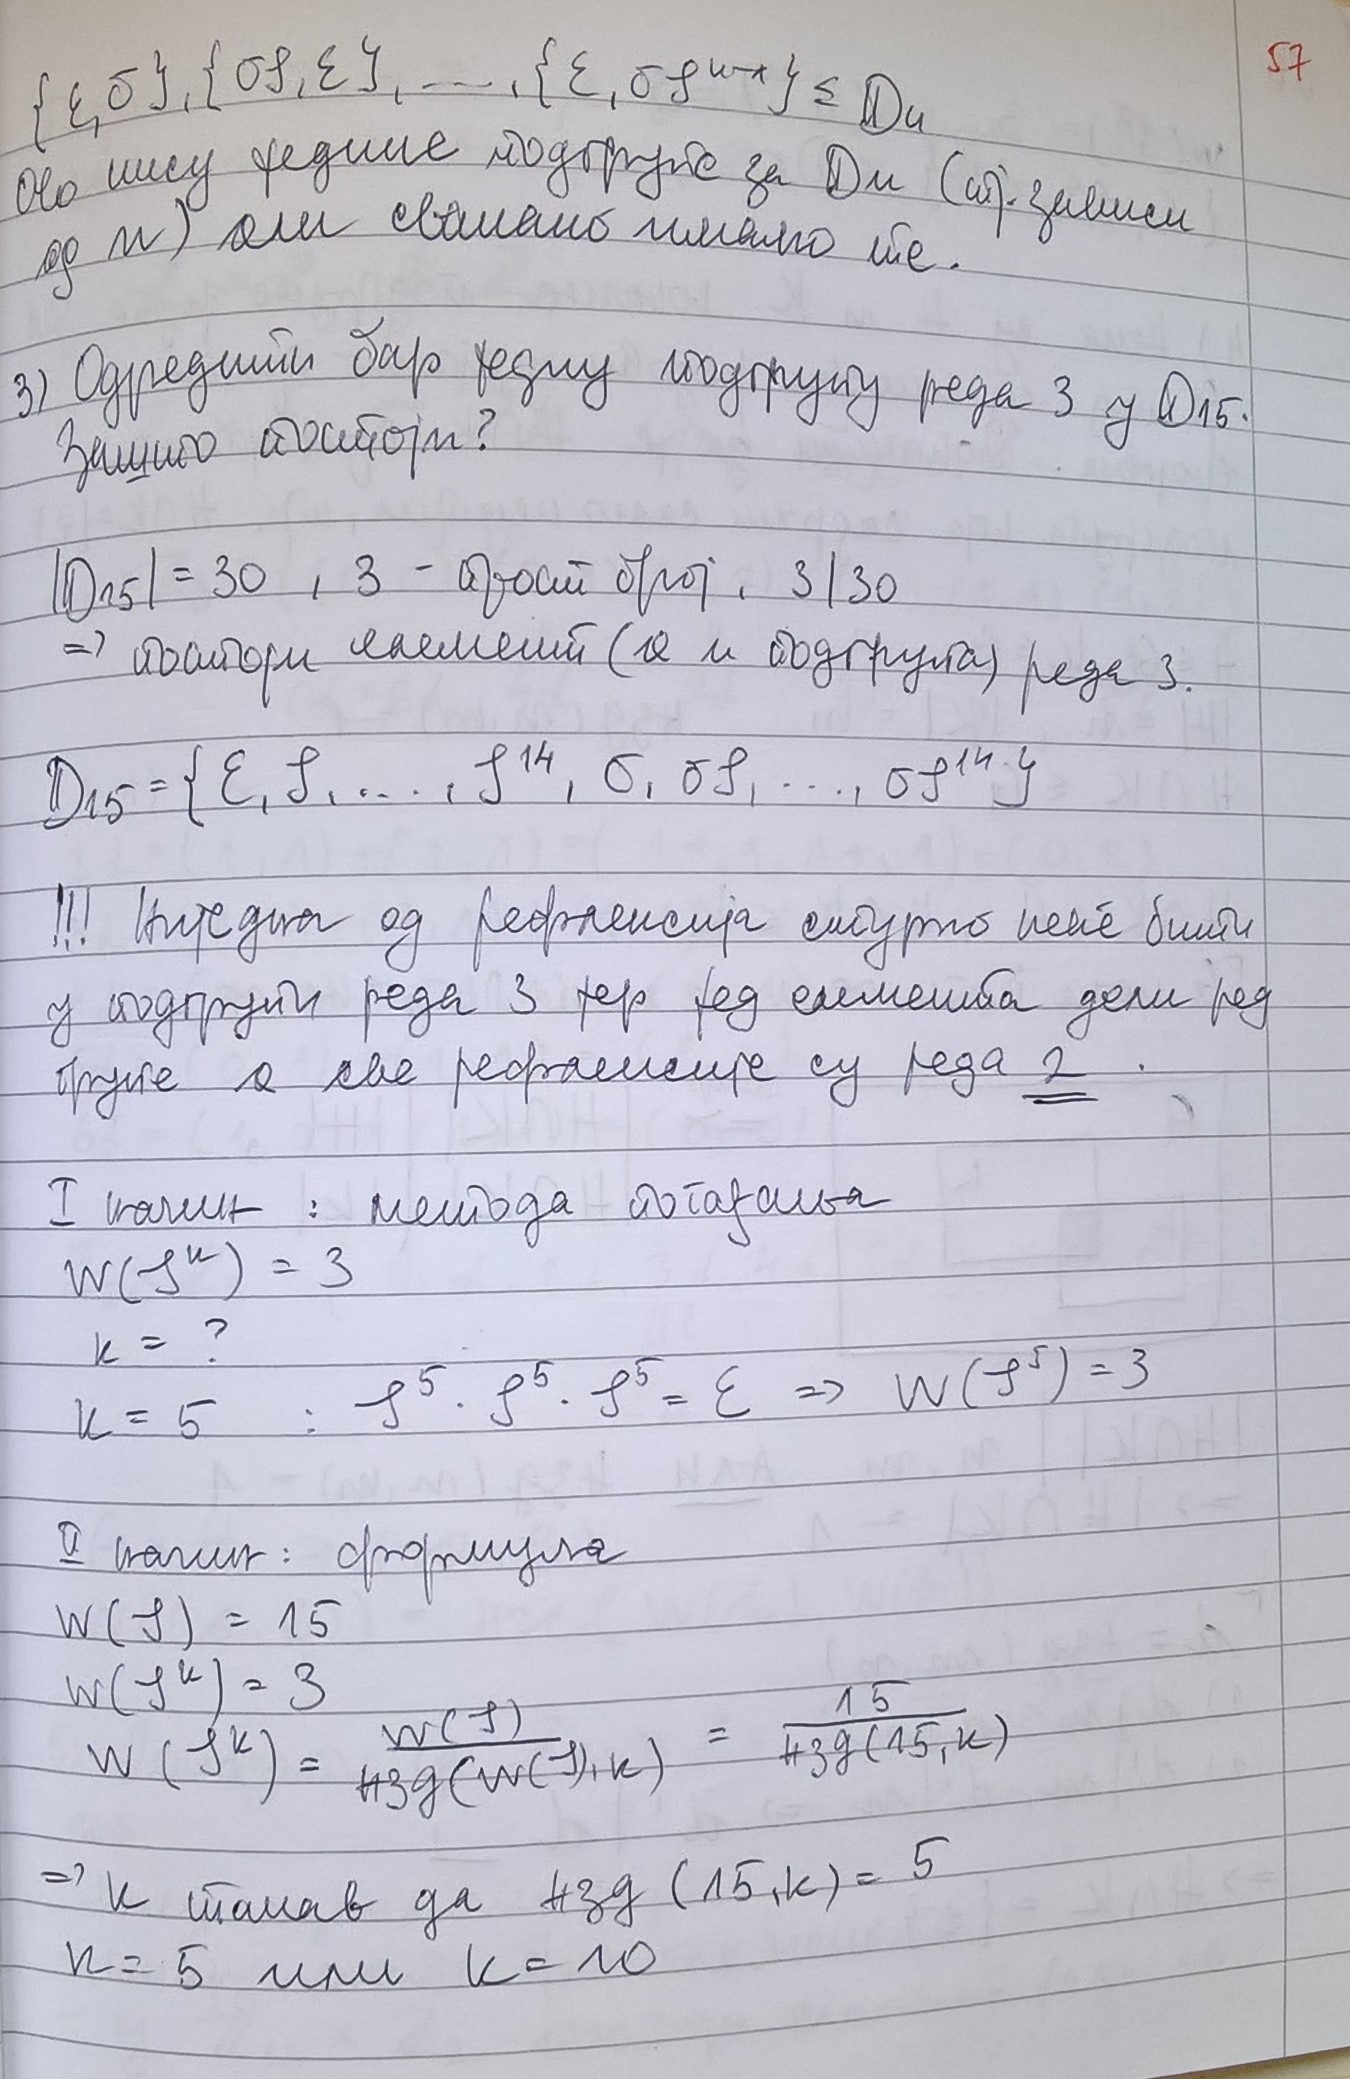 57
{ε,σ}, {σρ,ε}, ..., {ε,σρⁿ⁻¹} ≤ Dn
Ово нису једине подгрупе за Dn (тј. зависи
од n) али свакако имамо те.
3) Одредити бар једну подгрупу реда 3 у D15.
Зашто постоји?
|D15| = 30, 3 - прост број, 3|30
=> постоји елемент (а и подгрупа) реда 3.
D15 = {ε, ρ, ..., ρ¹⁴, σ, σρ, ..., σρ¹⁴}
!!! Ниједна од рефлексија сигурно неће бити
у подгрупи реда 3 јер ред елемента дели ред
групе а све рефлексије су реда 2.
I начин: метода погађања
w(ρᵏ) = 3
k = ?
k = 5 : ρ⁵ · ρ⁵ · ρ⁵ = ε => w(ρ⁵) = 3
II начин: формула
w(ρ) = 15
w(ρᵏ) = 3
w(ρᵏ) = w(ρ) / нзд(w(ρ), k) = 15 / нзд(15, k)
=> k такав да нзд(15, k) = 5
k = 5 или k = 10